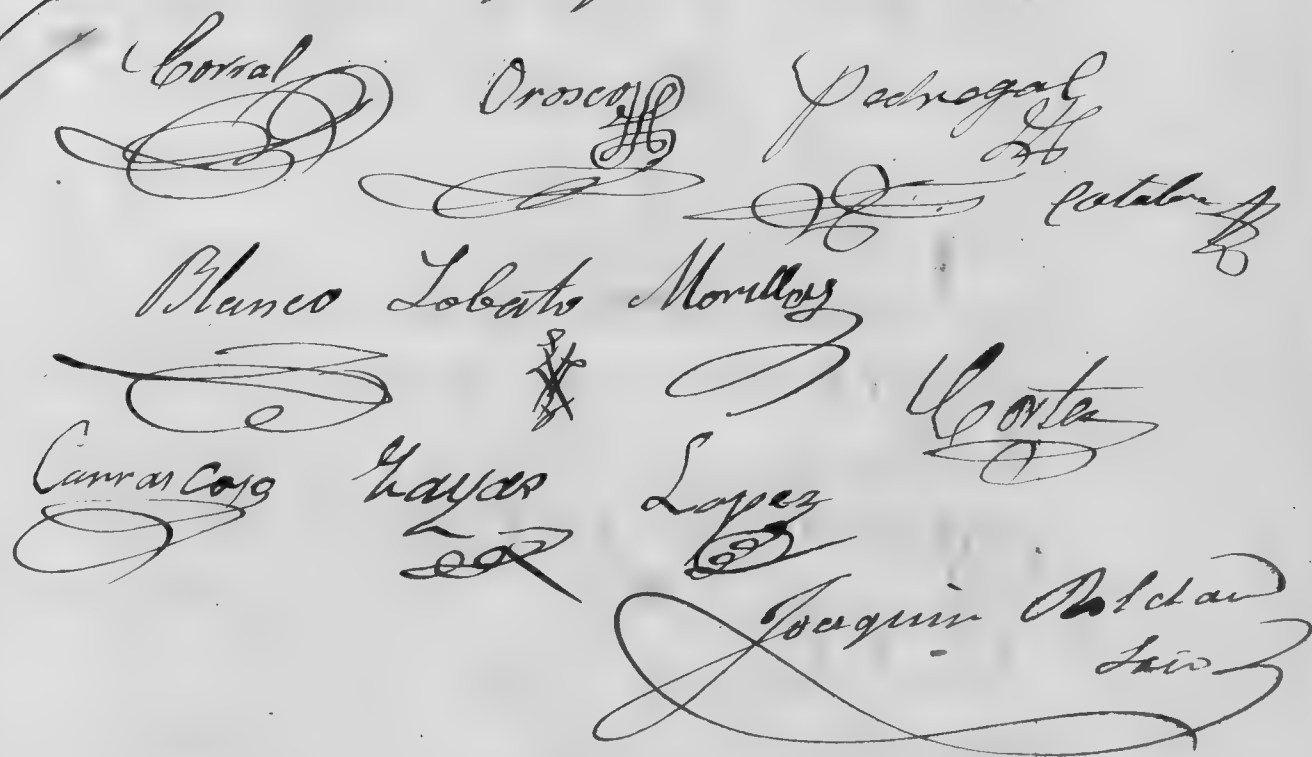 Corral Orosco Pedregal
Catalan
Blanco Lobato Morillas
Cortes
Carrascosa Zayas Lopez
Joaquin Roldan
Srio